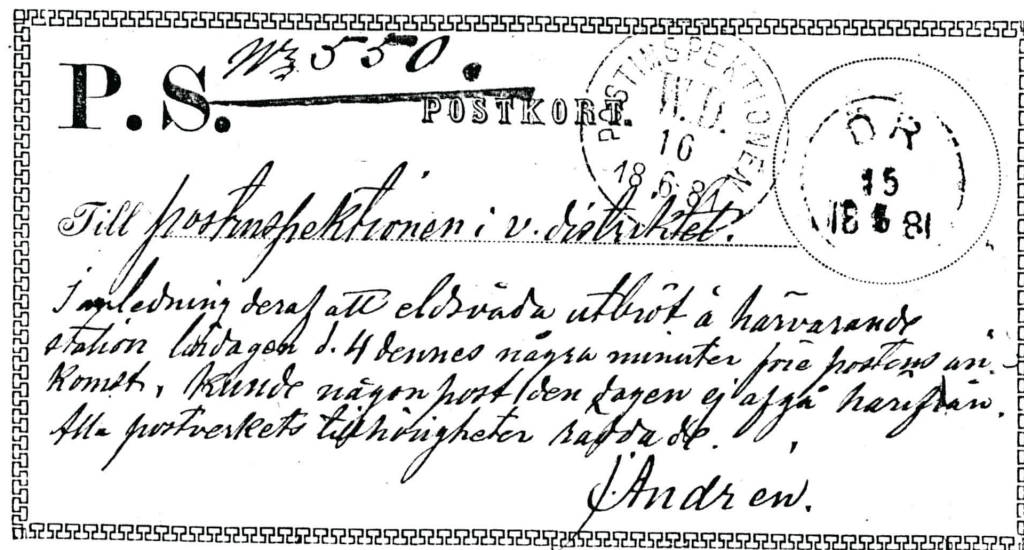 No 550.
P.S.
POSTKORT.
POSTINSPEKTIONEN
V.D.
16
18 6 81
ÖR
15
18 6 81
Till postinspektionen i v. distriktet.
I anledning deraf att eldsvåda utbröt å härvarande
station lördagen d. 4 dennes några minuter före postens an-
komst, kunde någon post den dagen ej afgå härifrån.
Alla postverkets tillhörigheter räddade.
J. Andrén.